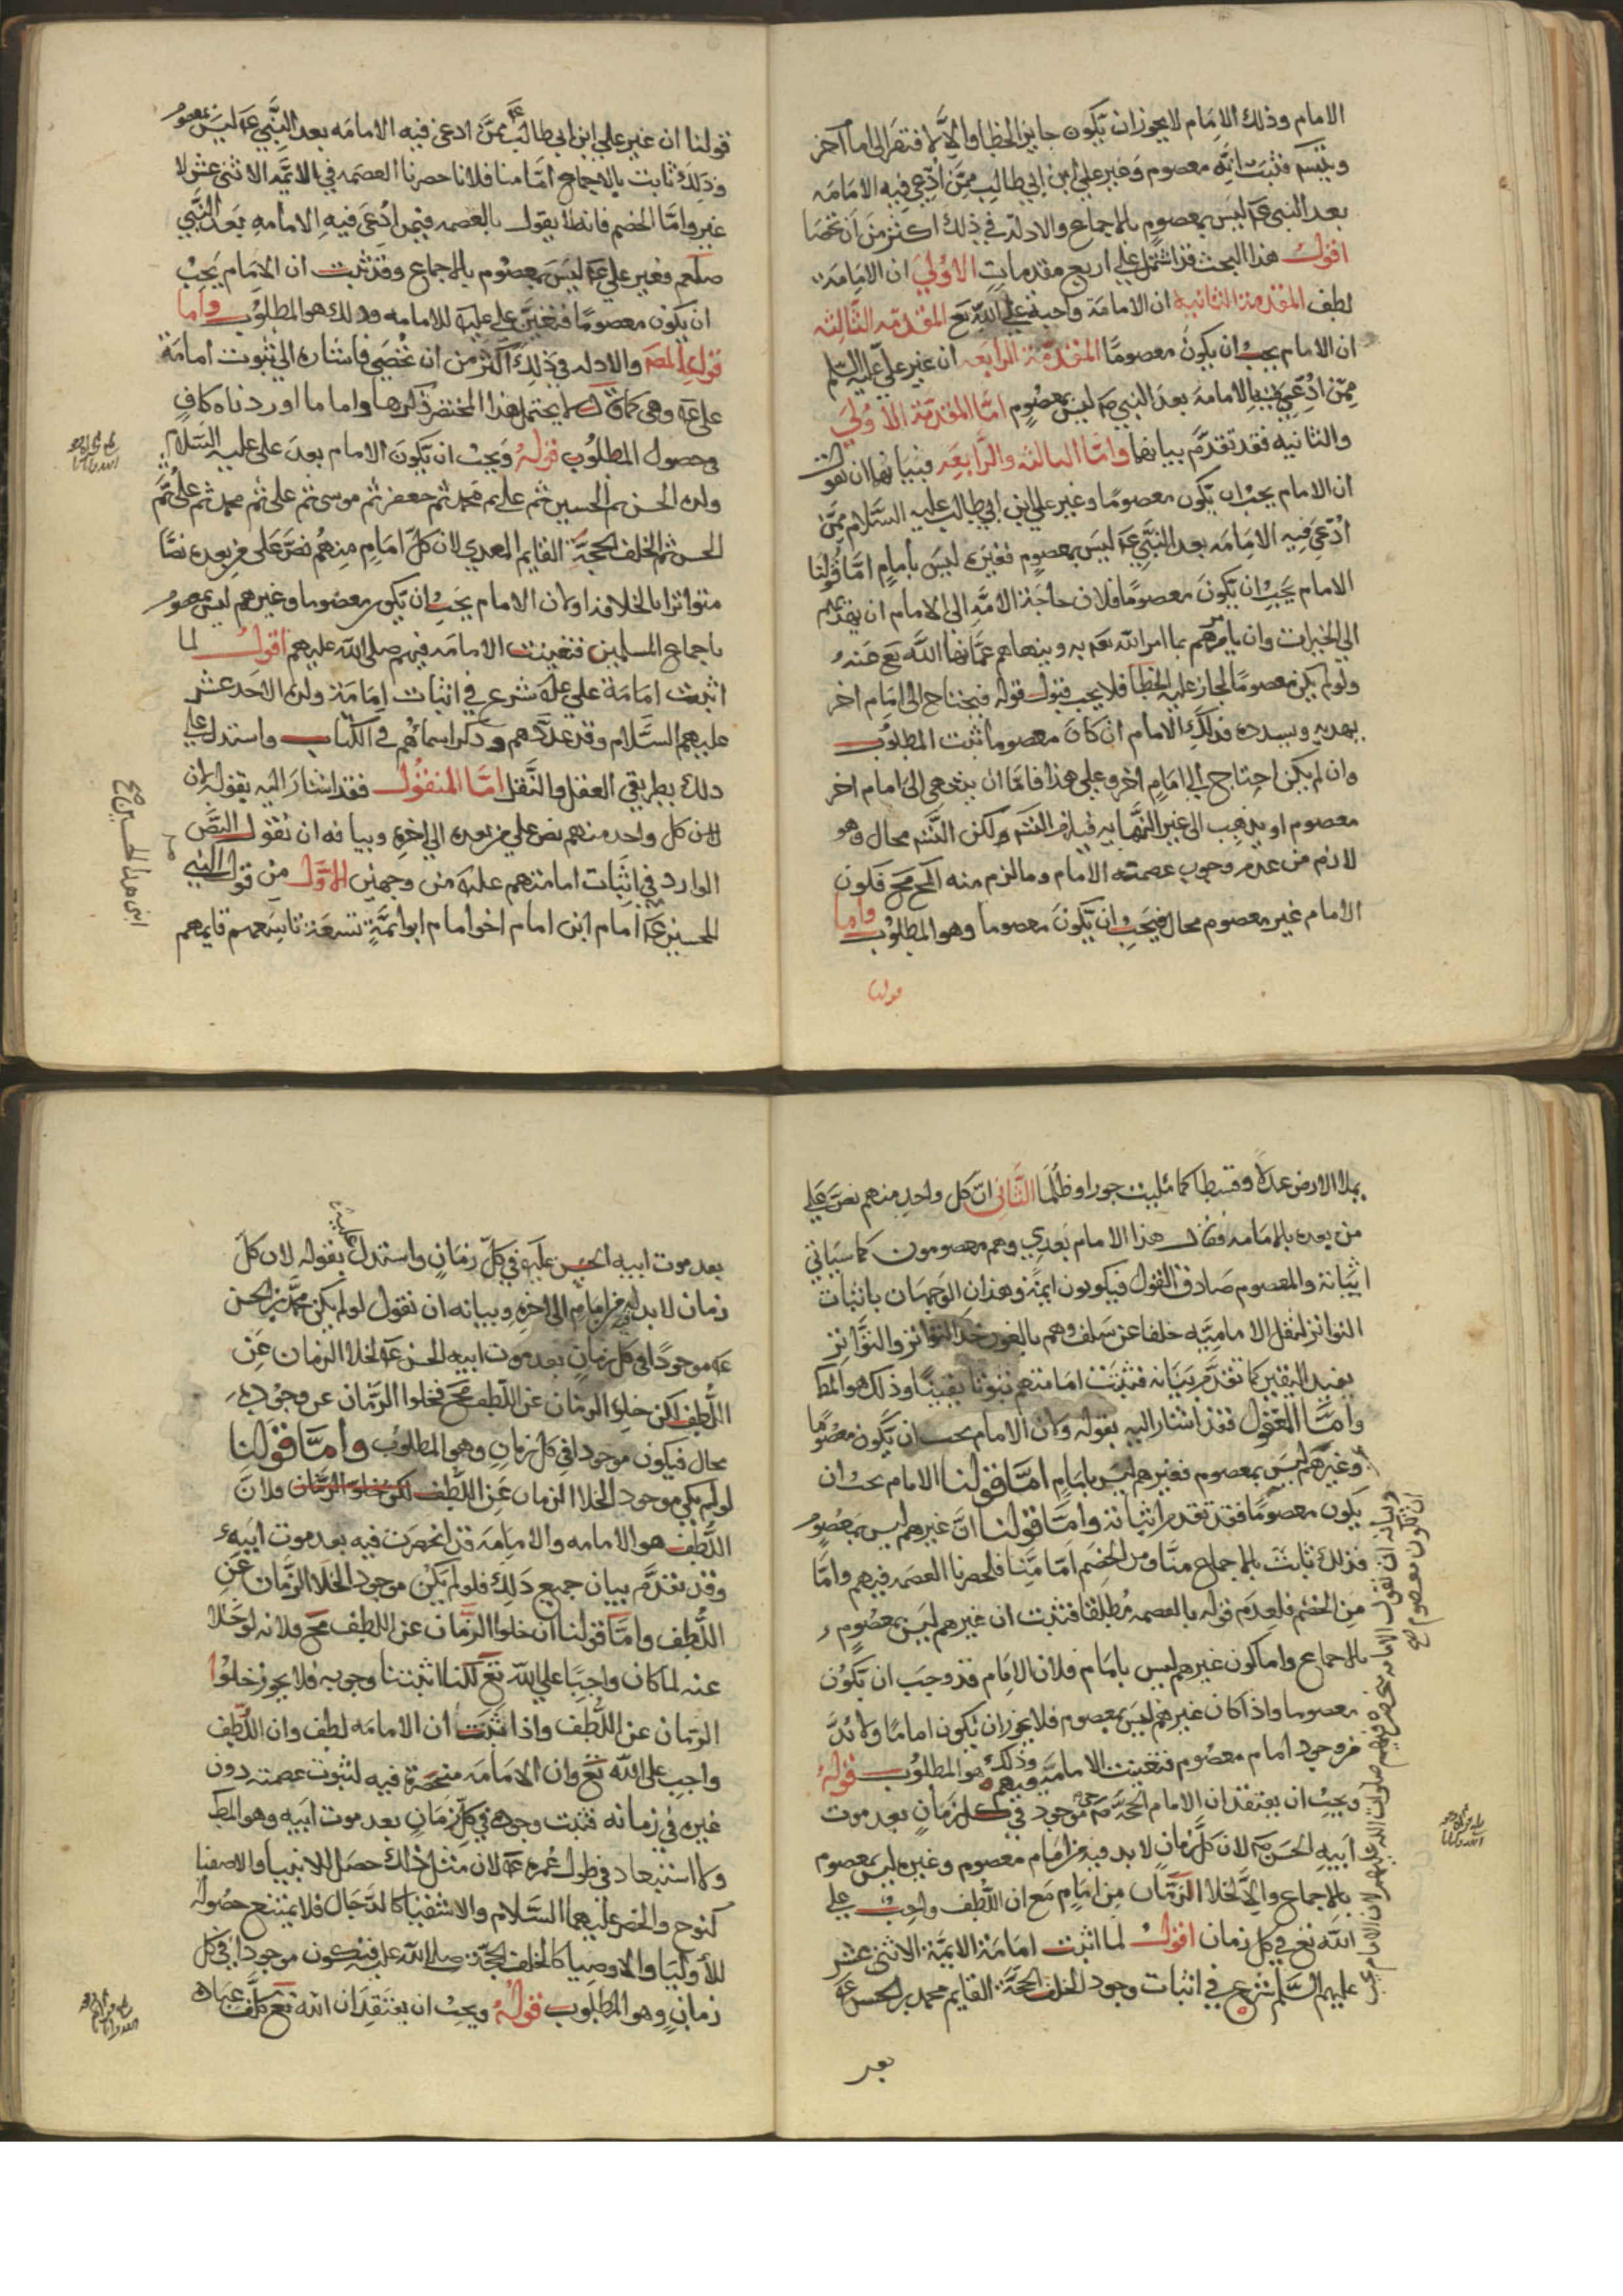 الامام وذلك الامام لا يجوز ان يكون جايز الخطا والا لافتقر الى امام آخر
ويتسم فثبت انه معصوم وغير علي ابن ابي طالب ممن ادعي فيه الامامه
بعد النبي عم ليس بمعصوم بالاجماع والادلة في ذلك اكثر من ان تحصا
اقول هذا البحث قد اشتمل على اربع مقدمات الاولى ان الامامة
لطف المقدمة الثانية ان الامامة واجبة على الله تع المقدمة الثالثه
ان الامام يجب ان يكون معصومًا المقدمة الرابعه ان غير علي عليه السلم
ممن ادعي فيه الامامة بعد النبي ص ليس بمعصوم امّا المقدمة الاولى
والثانيه فقد تقدّم بيانهما وامّا الثالثه والرابعه فبيانهما ان نقول
ان الامام يجب ان يكون معصومًا وغير علي ابن ابي طالب عليه السّلام ممّن
ادّعي فيه الامامه بعد النبي عم ليس بمعصوم فغيره ليس بامام امّا قولنا
الامام يجب ان يكون معصومًا فلان حاجة الامّة الى الامام ان يهديهم
الي الخيرات وان يامرهم بما امر الله تع به وينهاهم عمّا نها الله تع عنه
ولو لم يكن معصومًا لجاز عليه الخطا فلا يجب قبول قوله فيحتاج الى امام اخر
يهديه ويسدده فذلك الامام ان كان معصوما ثبت المطلوب
وان لم يكن احتاج الى امام اخر وعلى هذا فامّا ان ينتهي الى امام اخر
معصوم او يذهب الى غير النهايه فيلزم التسم ولكن التسم محال وهو
لازم من عدم وجوب عصمة الامام وما لزم منه المح مح فكون
الامام غير معصوم محال فيجب ان يكون معصوما وهو المطلوب واما
قولنا
قولنا ان غير علي ابن ابي طالب عم ممن ادعى فيه الامامه بعد النبي عم ليس بمعصوم
وذلك ثابت بالاجماع امّا منا فلانا حصرنا العصمه في الائمّه الاثنى عشر لا
غير وامّا الخصم فانه لا يقول بالعصمه فيمن ادعى فيه الامامه بعد النبي
صلعم فغير علي عم ليس بمعصوم بالاجماع وقد ثبت ان الامام يجب
ان يكون معصومًا فتعيّن علي عليه للامامه وذلك هو المطلوب واما
قول المص والادله في ذلك اكثر من ان تحصى فاشاره الى ثبوت امامة
على عم وهي لا يحتمل هذا المختصر ذكرها واما ما اوردناه كاف
في حصول المطلوب قوله ويجب ان يكون الامام بعد على عليه السّلام
ولده الحسن ثم الحسين ثم علي ثم محمد ثم جعفر ثم موسى ثم على ثم محمد ثم علي ثم
الحسن ثم الخلف الحجة القايم المهدي لان كلّ امام منهم نصّ على من بعده نصًّا
متواترا بالخلافه ولان الامام يجب ان يكون معصوما وغيرهم ليس بمعصوم
باجماع المسلمين فتعينت الامامه فيهم صلى الله عليهم اقول لما
اثبت امامة علي عليه شرع في اثبات امامة ولده الاحد عشر
عليهم السّلام وقد عدّدهم وذكر اسمائهم في الكتاب واستدل على
ذلك بطريقي العقل والنّقل امّا المنقول فقد اشار اليه بقوله ان
لان كل واحد منهم نص على من بعده الى اخره وبيانه ان نقول النصّ
الوارد في اثبات امامتهم عليه من وجهين الاوّل من قول النبي
للحسين عم امام ابن امام اخو امام ابو ائمّة تسعة تاسعهم قايمهم
ابني هذا الحسين صح
يملا الارض عدلاً وقسطا كما ملئت جورا وظلمًا الثاني انّ كل واحد منهم نصّ على
من بعده بالامامه فقال هذا الامام بعدي وهم معصومون كما سياتي
اثباته والمعصوم صادق القول فيكونون ائمّة وهذان الوجهان باثبات
التواتر لنقل الاماميّه خلفا عن سلف وهم بالغون حد التواتر والتّواتر
يفيد اليقين كما تقدّم بيانه فثبتت امامتهم ثبوتا يقينًا وذلك هو المط
وامّا العقول فقد اشار اليه بقوله ولان الامام يجب ان يكون معصومًا
وغيرهم ليس بمعصوم فغيرهم ليس بامام امّا قولنا الامام يجب ان
يكون معصومًا فقد تقدم اثباته وامّا قولنا انّ غيرهم ليس بمعصوم
فذلك ثابت بالاجماع منّا ومن الخصم امّا منّا فلحصرنا العصمه فيهم وامّا
من الخصم فلعدم قوله بالعصمه مطلقا فثبت ان غيرهم ليس بمعصوم
بالاجماع واما كون غيرهم ليس بامام فلان الامام قد وجب ان يكون
معصوما واذا كان غيرهم ليس بمعصوم فلا يجوز ان يكون امامًا ولا بدّ
من وجود امام معصوم فتعينت الامامة فيهم وذلك هو المطلوب قوله
ويجب ان يعتقد ان الامام الحجة حي موجود في كل زمان بعد موت
ابيه الحسن لان كلّ زمان لا بد فيه من امام معصوم وغيره ليس بمعصوم
بالاجماع والّا لخلا الزّمان من امام مع ان اللّطف واجب على
الله تع في كل زمان اقول لما اثبت امامة الايمّة الاثنى عشر
عليهم السّلم شرع في اثبات وجود الخلف الحجّة القايم محمد بن الحسن عم
بعد
بعد موت ابيه الحسن عليه في كلّ زمان واستدل عليه بقوله لان كلّ
زمان لا بد له من امام الى اخره وبيانه ان نقول لو لم يكن محمّد بن الحسن
عم موجودًا في كل زمان بعد موت ابيه الحسن عم لخلا الزمان عن
اللّطف لكن خلو الزمان عن اللّطف مح فخلوا الزّمان عن وجوده
محال فيكون موجودا في كل زمان وهو المطلوب وامّا قولنا
لو لم يكن موجود الخلا الزمان عن اللّطف لكن خلو الزّمان فلانّ
اللّطف هو الامامه والامامة قد انحصرت فيه بعد موت ابيه
وقد تقدّم بيان جميع ذلك فلو لم يكن موجود الخلا الزّمان عن
اللّطف وامّا قولنا ان خلوا الزّمان عن اللطف مح فلانه لو خلا
عنه لما كان واجبًا على الله تع لكنا اثبتنا وجوبه فلا يجوز خلوا
الزمان عن اللّطف واذا ثبت ان الامامه لطف وان اللّطف
واجب على الله تع وان الامامة منحصرة فيه لثبوت عصمته دون
غيره في زمانه فثبت وجوده في كلّ زمان بعد موت ابيه وهو المط
ولا استبعاد في طول عمره عم لان مثل ذلك حصل للانبيا والاصفيا
كنوح والخضر عليهما السّلام والاشقيا كالدّجال فلا يمتنع حصوله
للأوليا والاوصيا كالخلف الحجّة صلى الله عليه فيكون موجودا في كل
زمان وهو المطلوب قوله ويجب ان يعتقد ان الله تع كلّف عباده